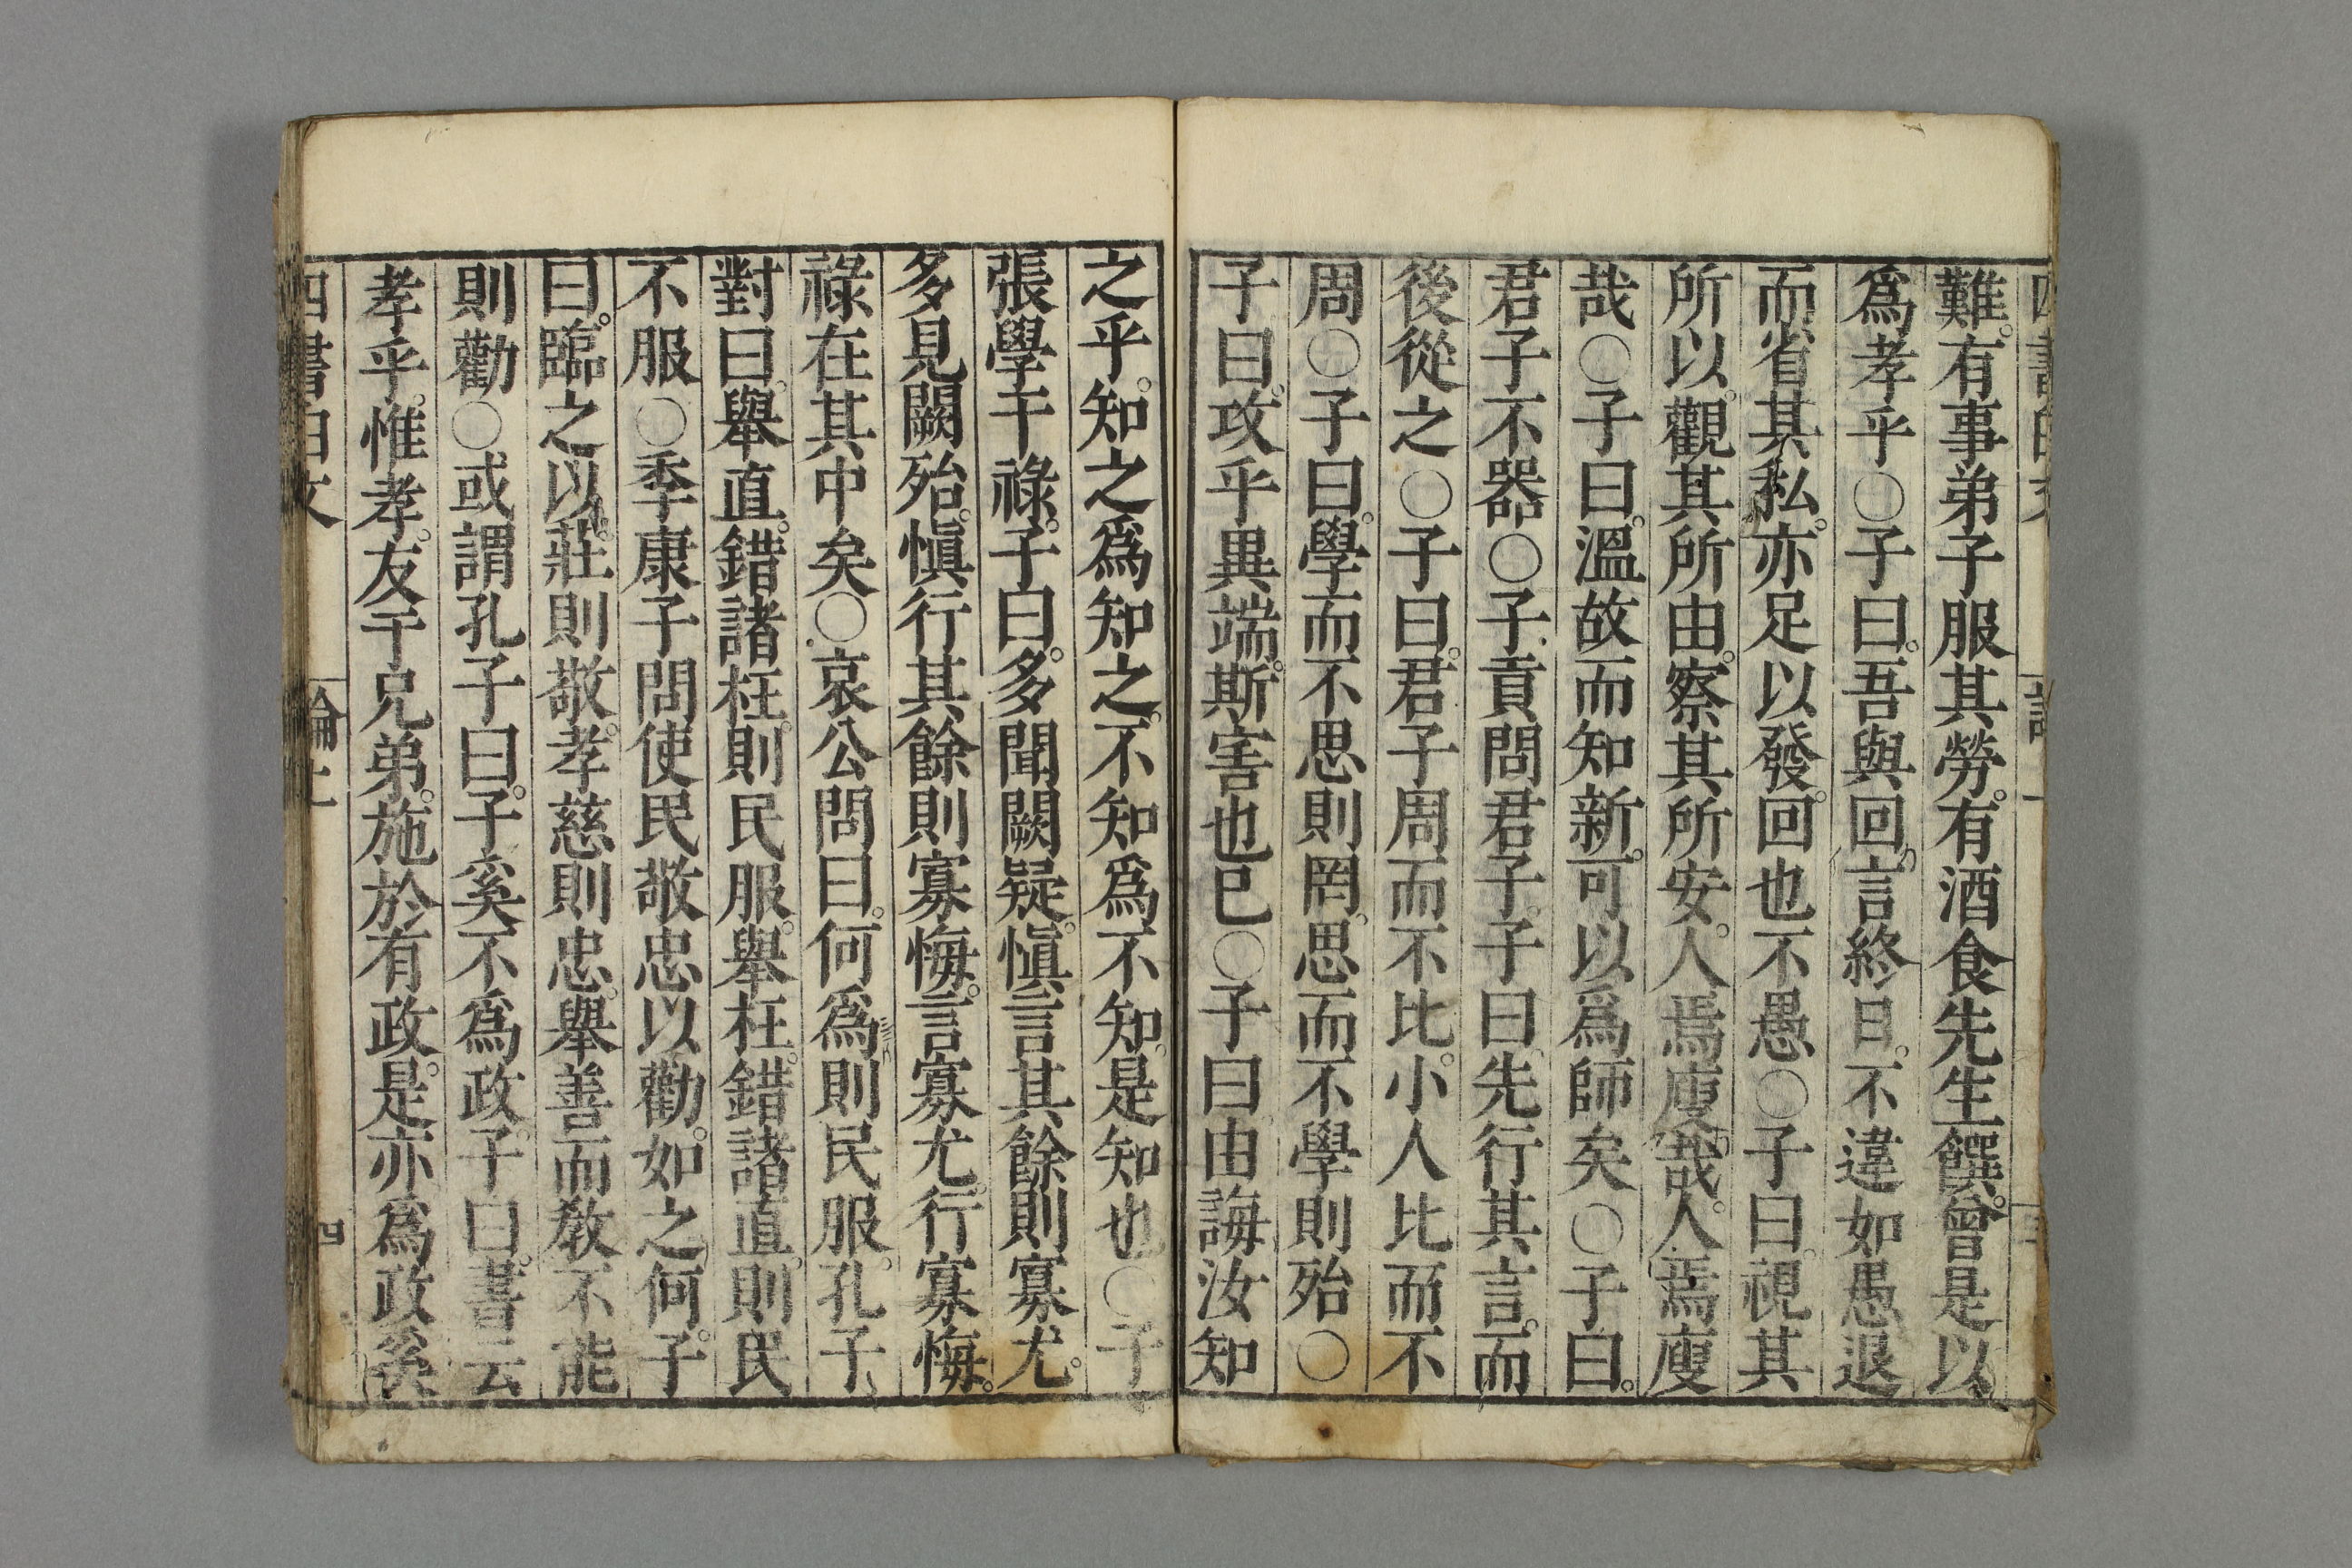 難。有事弟子服其勞。有酒食先生饌。曾是以
爲孝乎○子曰。吾與回言終日。不違如愚退
而省其私。亦足以發。回也不愚○子曰。視其
所以。觀其所由。察其所安。人焉廋哉。人焉廋
哉○子曰。溫故而知新。可以爲師矣○子曰。
君子不器○子貢問君子。子曰。先行其言。而
後從之○子曰。君子周而不比。小人比而不
周○子曰。學而不思則罔。思而不學則殆○
子曰。攻乎異端。斯害也已○子曰由誨汝知
之乎。知之爲知之。不知爲不知。是知也○子
張學干祿。子曰。多聞闕疑。慎言其餘則寡尤。
多見闕殆。慎行其餘則寡悔。言寡尤。行寡悔。
祿在其中矣○哀公問曰。何爲則民服。孔子
對曰。舉直。錯諸枉。則民服。舉枉。錯諸直。則民
不服○季康子問使民敬忠以勸。如之何。子
曰。臨之以。莊則敬。孝慈則忠。舉善而教不能
則勸○或謂孔子曰。子奚不爲政。子曰。書云
孝乎。惟孝。友于兄弟。施於有政。是亦爲政奚
四書白文 論上 四